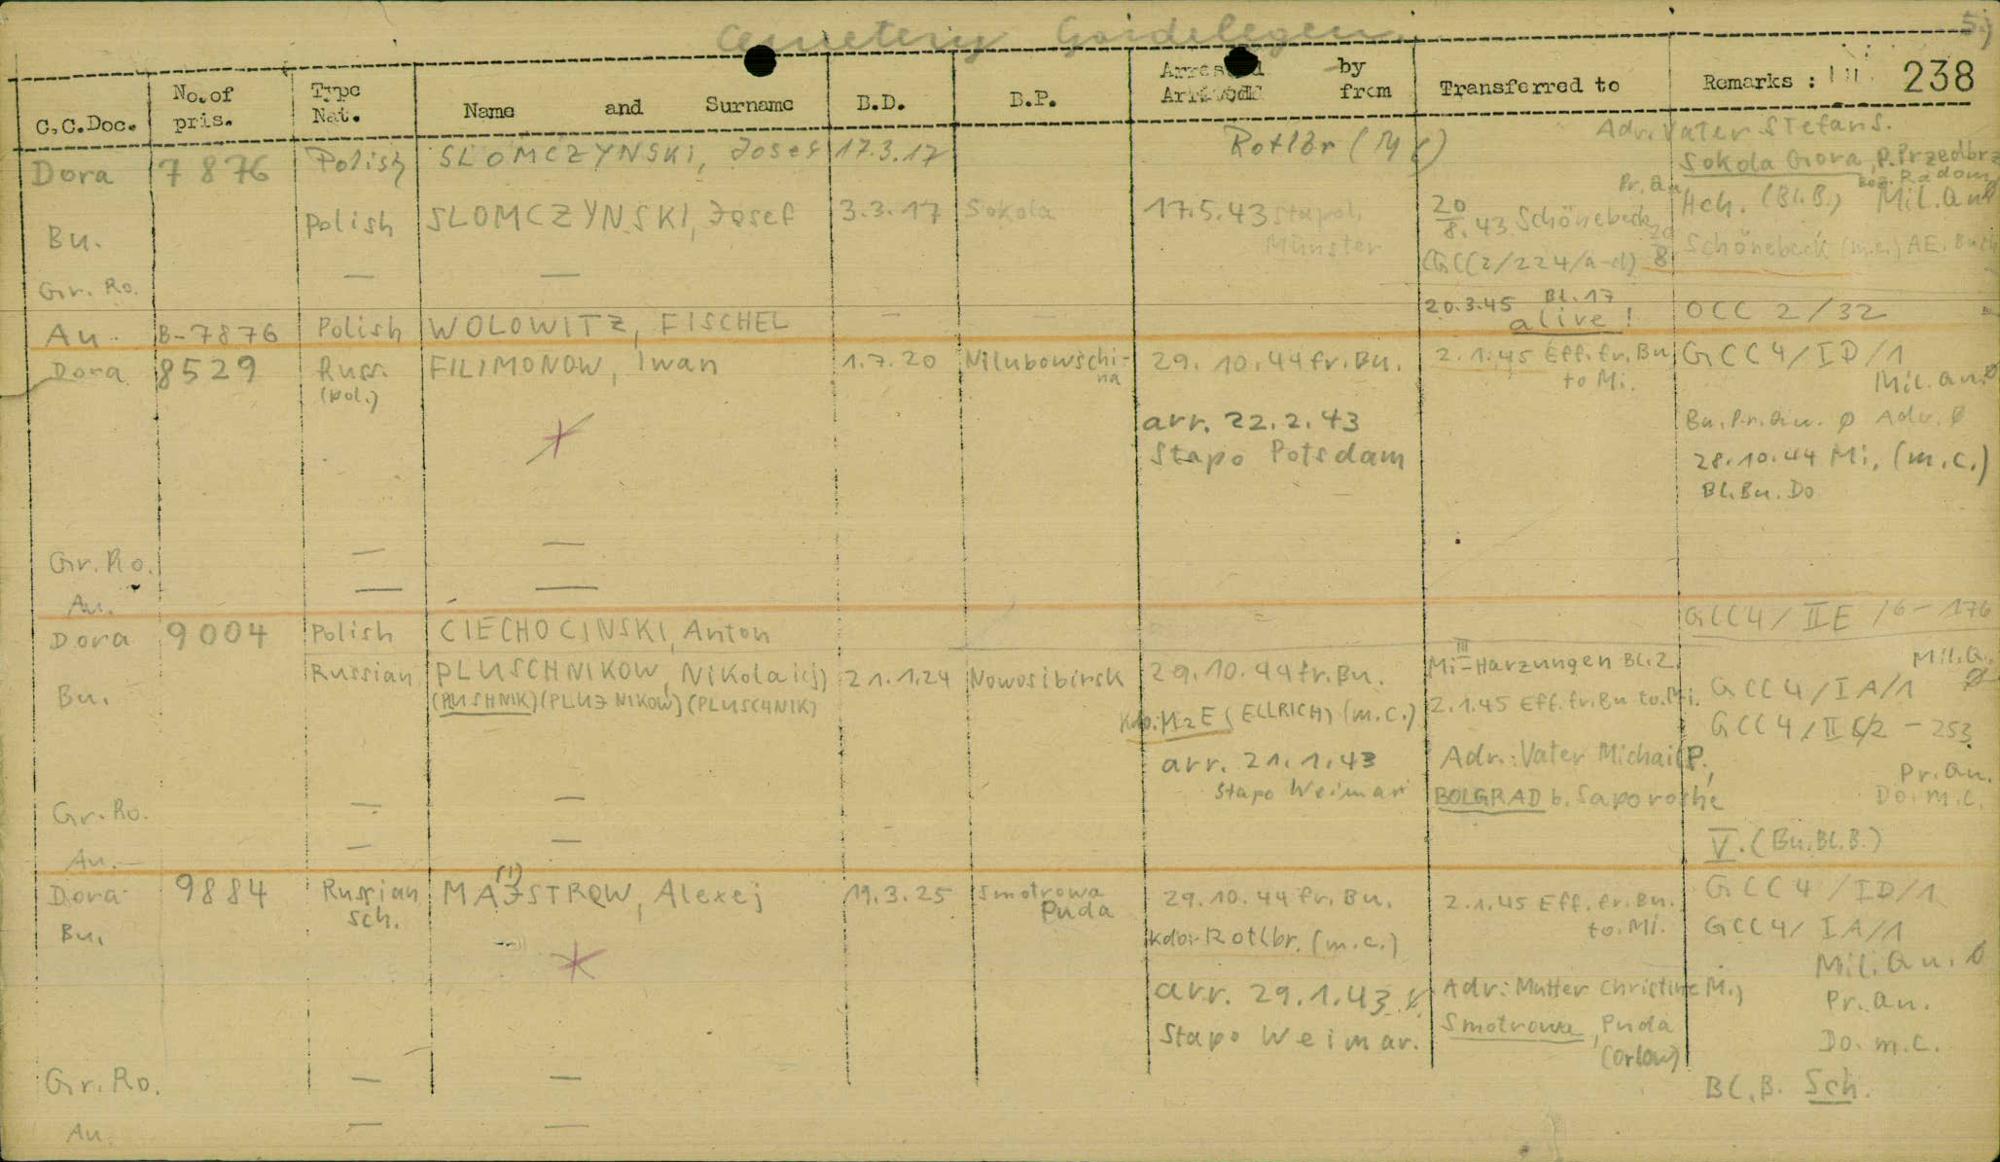 Cemetery Gardelegen. 5)
C.C.Doc. No. of pris. Type Nat. Name and Surname B.D. B.P. Arrested by Arrived from Transferred to Remarks : 238
Adr. Vater Stefan S.
Dora 7876 Polish SLOMCZYNSKI, Josef 17.3.17 Rotlbr
Sokola Gora, P. Przedbrz
Radom
Pr. an
Bu. Polish SLOMCZYNSKI, Josef 3.3.17 Sokola 17.5.43 Stapol, 20/8.43 Schönebeck Hch. (Bl.B.) Mil. an
Münster (GCC2/224/a-d) 20/8 Schönebeck (m.c.) AE. Buch
Gr. Ro. — —
20.3.45 Bl. 17
Au. B-7876 Polish WOLOWITZ, FISCHEL — — alive! OCC 2/32
Dora 8529 Russ. FILIMONOW, Iwan 1.7.20 Nilubowschi- 29.10.44 fr. Bu. 2.1.45 Eff. fr. Bu GCC4/ID/1
(pol.) na to Mi. Mil. an. ø
arr. 22.2.43 Bu. Pr. an. ø Adr. ø
Stapo Potsdam 28.10.44 Mi. (m.c.)
Bl. Bu. Do
Gr. Ro. — —
Au. — —
GCC4/IIE/6-176
Dora 9004 Polish CIECHOCINSKI, Anton
III
Bu. Russian PLUSCHNIKOW, Nikolai(j) 21.1.24 Nowosibirsk 29.10.44 fr. Bu. Mi-Harzungen Bl.2. Mil. a. ø
(PLUSHNIK) (PLUJNIKOW) (PLUSCHNIK) GCC4/IA/1
Kdo: M2E (ELLRICH) (m.c.) 2.1.45 Eff. fr. Bu to. Mi. GCC4/II - 253
arr. 21.1.43 Adr.: Vater Michail P.,
Stapo Weimar BOLGRAD b. Saporoshe Pr. an.
Do. m.c.
Gr. Ro. — —
V. (Bu. Bl. B.)
Au. — —
(I)
Dora 9884 Russian MAJSTROW, Alexej 19.3.25 Smotrowa 29.10.44 fr. Bu. 2.1.45 Eff. fr. Bu. GCC4/ID/1
Sch. Puda to. Mi.
Bu. Kdo: Rotlbr. (m.c.) GCC4/IA/1
Mil. an. ø
arr. 29.1.43 Adr: Mutter Christine M., Pr. an.
Stapo Weimar. Smotrowa, Puda Do. m.c.
(Orlow)
Gr. Ro. — — Bl. B. Sch.
Au. — —